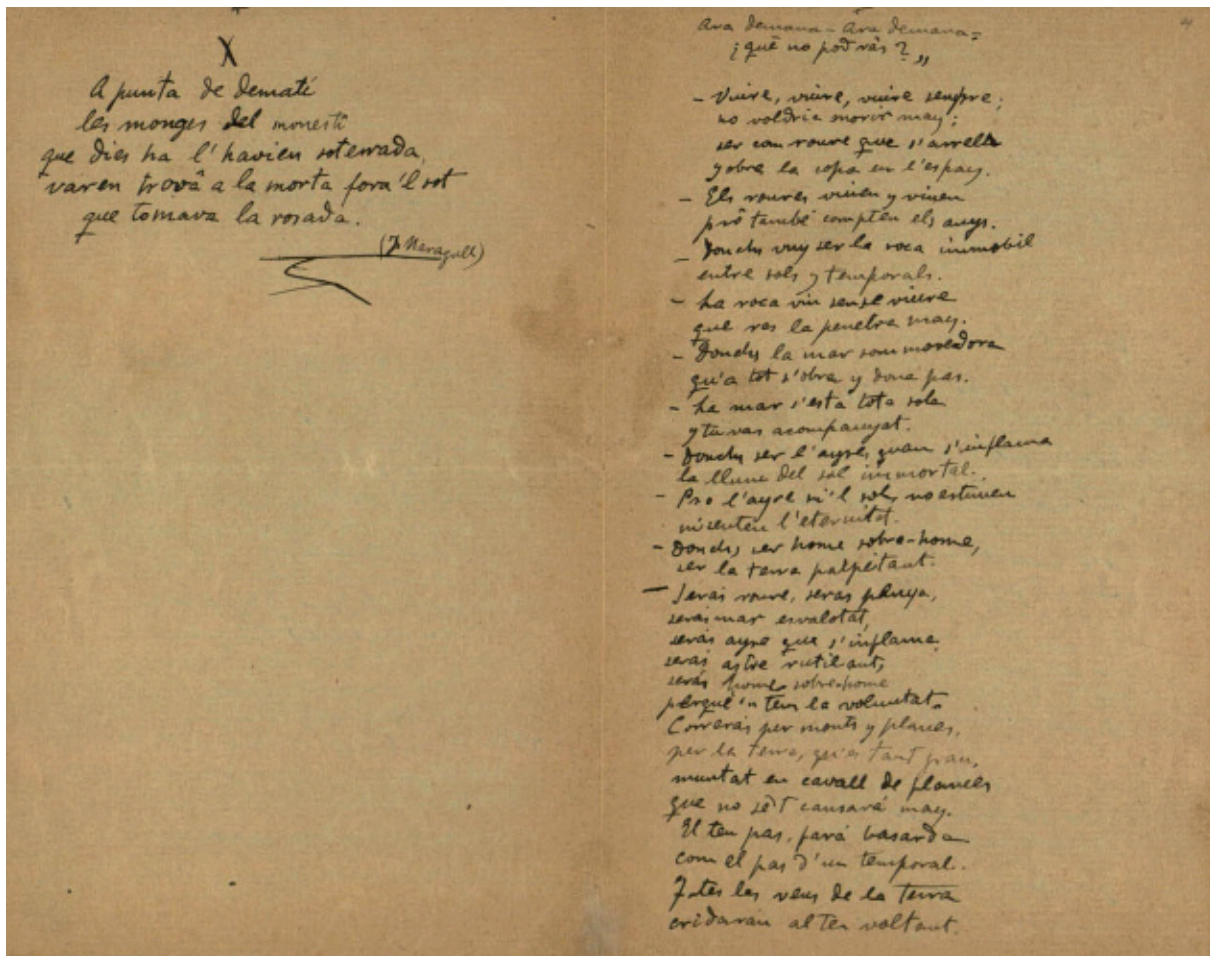 X
A punta de dematí
les monges del monestí
que dies ha l'havien soterrada,
varen trovâ a la morta fora'l sot
que tomava la rosada.
(J Maragall)
4
Ara demana - Ara demana =
¿quê no podràs? „
- Viure, viure, viure sempre;
no voldria morir may;
ser com roure que s'arrela
y obre la copa en l'espay.
- Els roures viuen y viuen
prô també compten els anys.
- Donchs vuy ser la roca immobil
entre sols y temporals.
- La roca viu sense viure
que res la penetra may.
- Donchs la mar sommovedora
qu'a tot s'obra y dona pas.
- La mar s'està tota sola
y tu vas acompanyat.
- Donchs ser l'ayre quan s'inflama
la llum del sol immortal.
- Pro l'ayre ni'l sol no estimen
ni senten l'eternitat.
- Donchs, ser home sobre-home,
ser la terra palpitant.
- Seràs roure, seras penya,
seràs mar esvalotat,
seràs ayre que s'inflama,
seràs astre rutilant,
seràs home sobre-home
perque'n tens la voluntat.
Correràs per monts y planes,
per la terra, qu'es tant gran,
muntat en cavall de flames
que no se't cansará may.
El teu pas, fará basarda
com el pas d'un temporal.
Totes les veus de la terra
cridaràn al teu voltant.